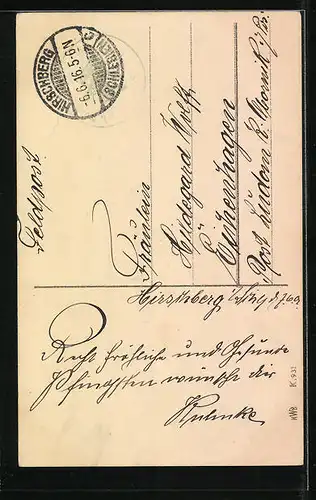 HIRSCHBERG
(SCHLESIEN)
-6.6.16.5-6N
Feldpost
Fräulein
Hildegard Wolff
Eichenhagen
Post
Hirschberg
Recht fröhliche und Gesunde
Pfingsten wünscht dir
KWB K.931